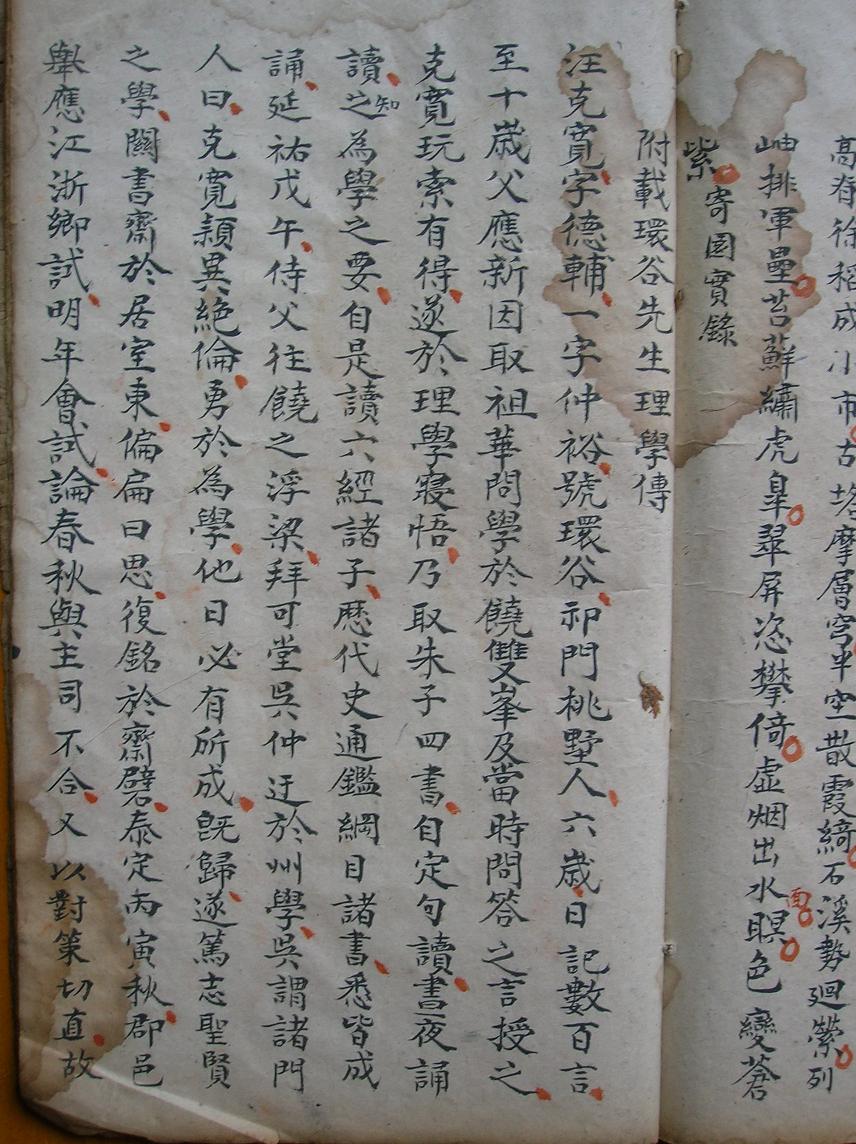 高舂徐稻成小市古塔摩層穹半空散霞綺石溪勢迴縈列
岫排軍壘苔蘚繡虎皐翠屏恣攀倚虛烟出水面暝色變蒼
紫　寄園實錄
附載環谷先生理學傳
汪克寬字德輔一字仲裕號環谷祁門桃墅人六歲日記數百言
至十歲父應新因取祖華問學於饒雙峯及當時問答之言授之
克寬玩索有得遂於理學寢悟乃取朱子四書自定句讀晝夜誦
讀知之為學之要自是讀六經諸子歷代史通鑑綱目諸書悉皆成
誦延祐戊午侍父往饒之浮梁拜可堂吳仲迂於州學吳謂諸門
人曰克寬頴異絶倫勇於為學他日必有所成旣歸遂篤志聖賢
之學闢書齋於居室東偏扁曰思復銘於齋壁泰定丙寅秋郡邑
舉應江浙鄉試明年會試論春秋與主司不合又以對策切直故